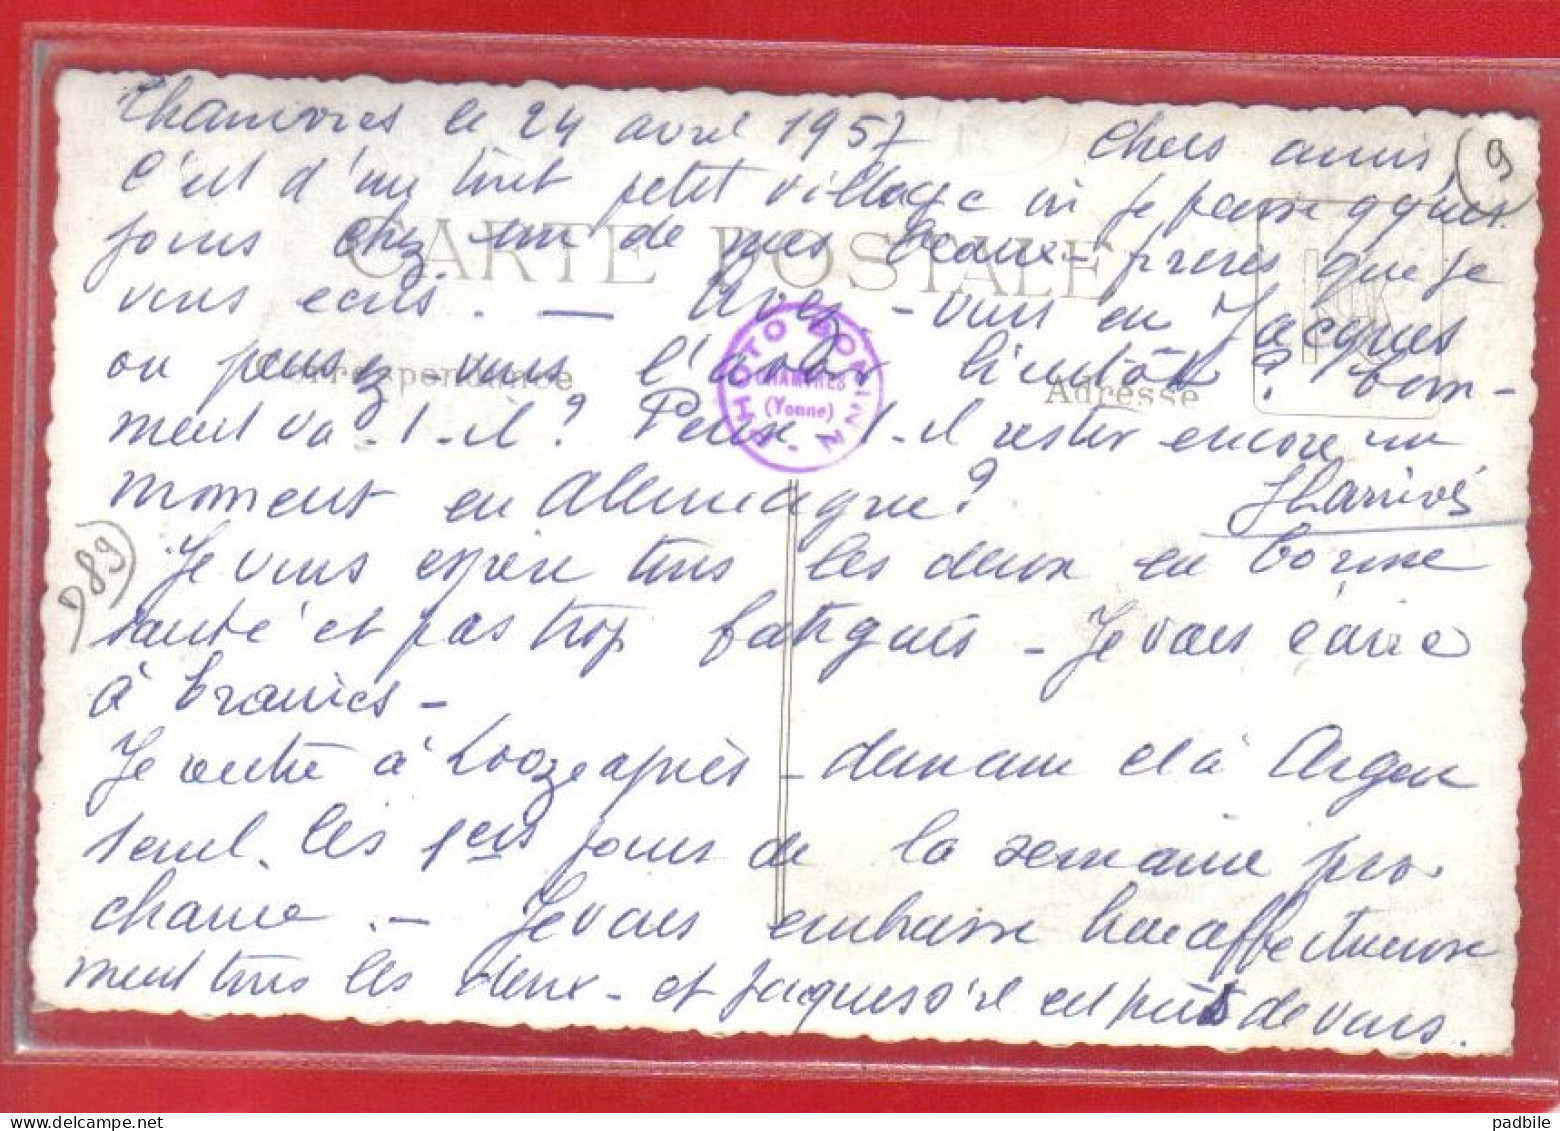 Chamvres le 24 avril 1957 Chers amis,
C'est d'un tout petit village où je passe qques
jours chez un de mes beaux-frères que je
vous écris. — Avez-vous eu Jacques
ou pensez-vous l'avoir bientôt ? Com-
ment va-t-il ? Peux t-il rester encore un
moment en Allemagne ?
Je vous espère tous les deux en bonne
santé et pas trop fatigués - Je vais écrire
à
Je rentre à Looze après-demain et à Argen
teuil les 1ers jours de la semaine pro-
chaine. - Je vous embrasse bien affectueuse
ment tous les deux - et Jacques s'il est près de vous.
CARTE POSTALE
Correspondance
Adresse
PHOTO BONINN
CHAMVRES
(Yonne)
989
9
padbile